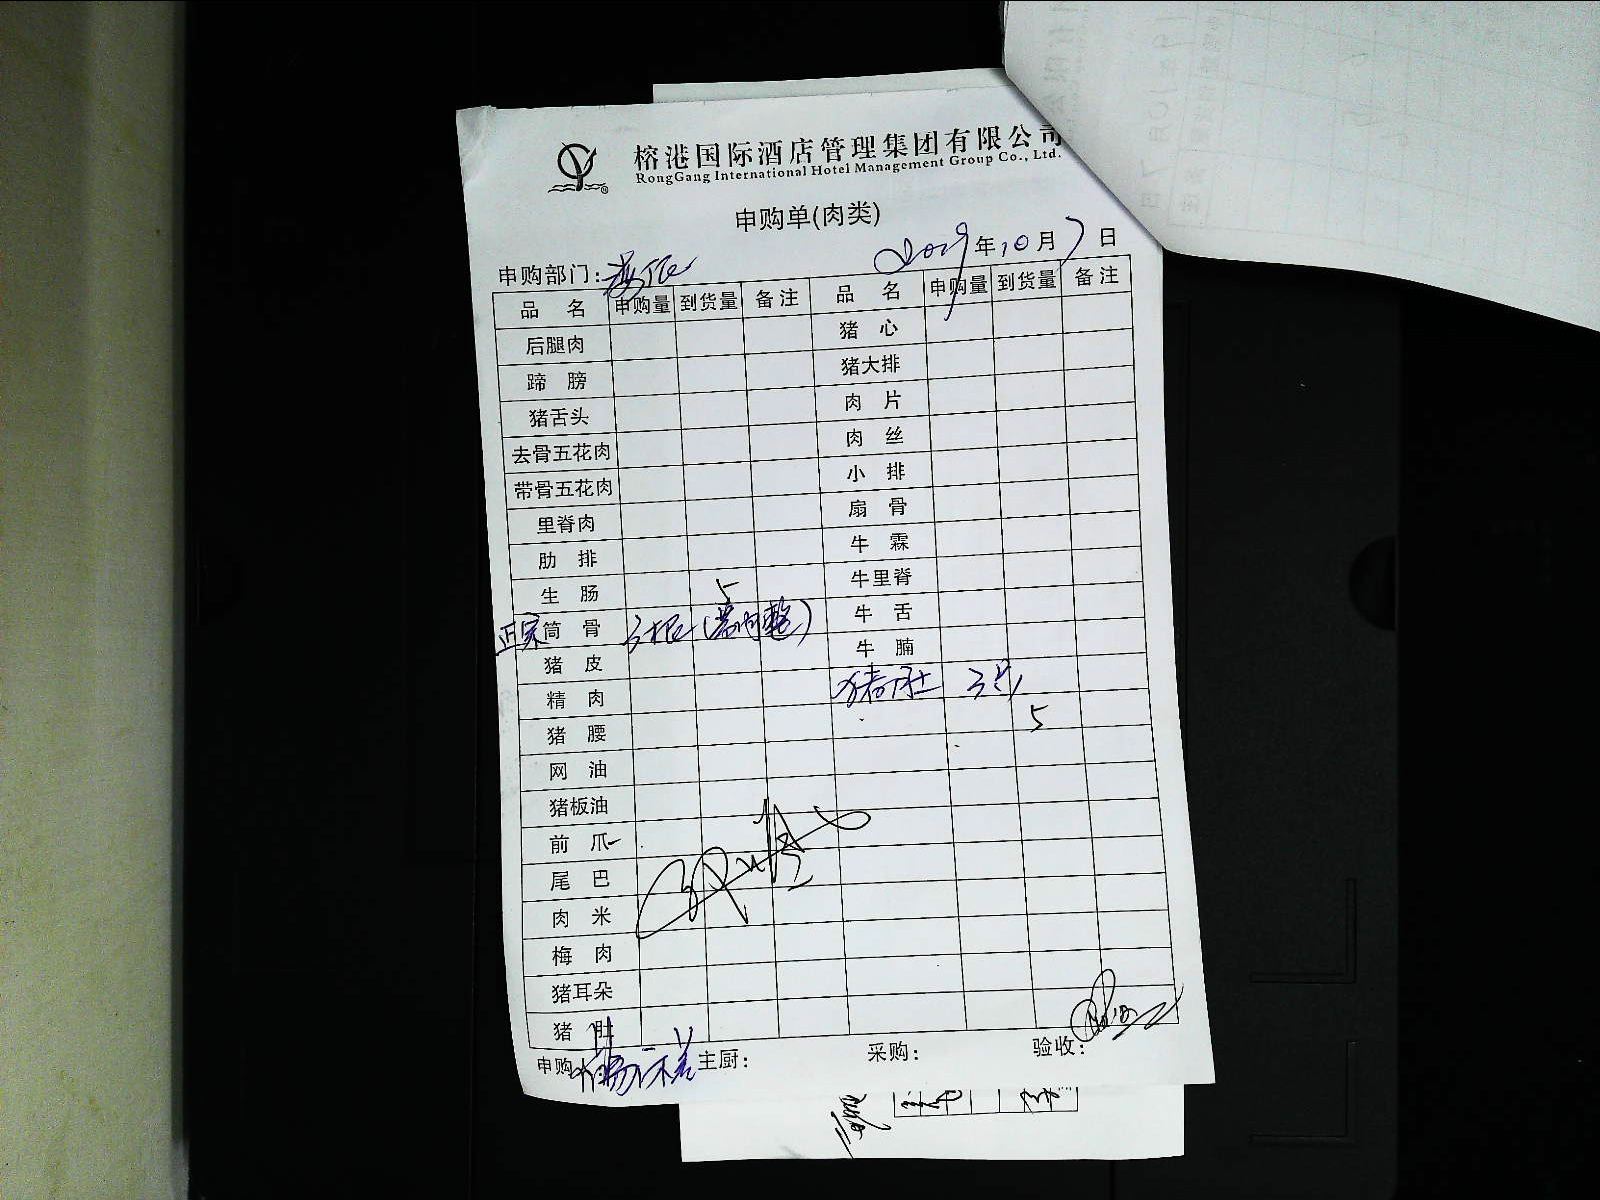 榕港国际酒店管理集团有限公司
RongGang International Hotel Management Group Co., Ltd.
申购单(肉类)
2019年10月7日
申购部门:
品 名 申购量 到货量 备注 品 名 申购量 到货量 备注
后腿肉 猪 心
蹄 膀 猪大排
猪舌头 肉 片
去骨五花肉 肉 丝
带骨五花肉 小 排
里脊肉 扇 骨
肋 排 牛 霖
生 肠 5 牛里脊
正宗筒 骨 3根 牛 舌
猪 皮 牛 腩
精 肉 猪肚 3只
猪 腰 5
网 油
猪板油
前 爪
尾 巴
肉 米
梅 肉
猪耳朵
猪 肚
申购 主厨: 采购: 验收: